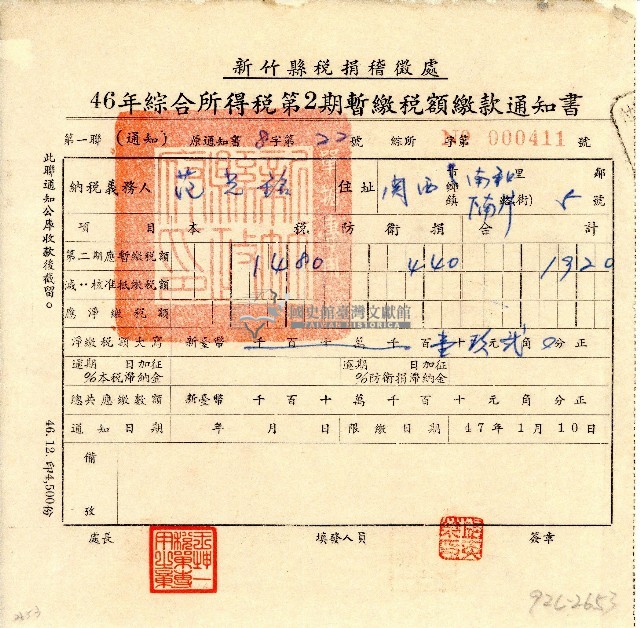 新竹縣稅捐稽徵處
46年綜合所得稅第2期暫繳稅額繳款通知書
第一聯 (通知) 原通知書 8 字第 22 號 綜所 字第 NO 000411 號
納稅義務人 范 住址 關西 鄉鎮 南和 里 鄰 (街) 5 號
項目 本稅 防衛捐 合計
第二期應暫繳稅額 1480 440 1920
減：核准抵繳稅額
應淨繳稅額
淨繳稅額大寫 新臺幣 千百十萬千百壹十玖元貳角0分正
逾期 日加征 %本稅滯納金 逾期 日加征 %防衛捐滯納金
總共應繳數額 新臺幣 千百十萬千百十元角分正
通知日期 年 月 日 限繳日期 47年1月10日
備
攷
處長 填發人員 簽章
此聯通知公庫收款後截留。
46.12.印4,500份
國史館臺灣文獻館
TAIWAN HISTORICA
2653
92L-2653